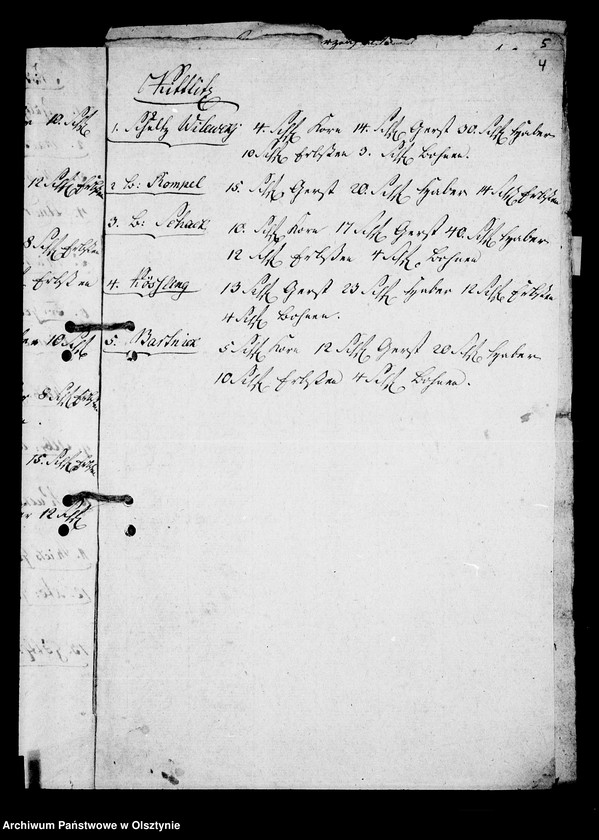 5
4
Kittlitz
1. Schultz Wilewzÿ 4. Schfl Korn 14. Schfl Gerst 30. Schfl Haber
10 Schfl Erbßen 3. Schfl Bohnen.
2 B: Rompel 15. Schfl Gerst 20. Schfl Haber 14 Schfl Erbßen
3. B: Schack 10. Schfl Korn 17 Schfl Gerst 40. Schfl Haber
12 Schfl Erbßen 4 Schfl Bohnen
4. Kößling 13 Schfl Gerst 23 Schfl Haber 12 Schfl Erbßen
4 Schfl Bohnen.
5. Bartnick 5 Schfl Korn 12 Schfl Gerst 20 Schfl Haber
10 Schfl Erbßen 4 Schfl Bohnen.
10. Schfl
12 Schfl Erbßen
8 Schfl Erbßen
Erbßen
10 Schfl
8 Schfl Erbßen
15. Schfl Erbßen
12 Schfl
Archiwum Państwowe w Olsztynie